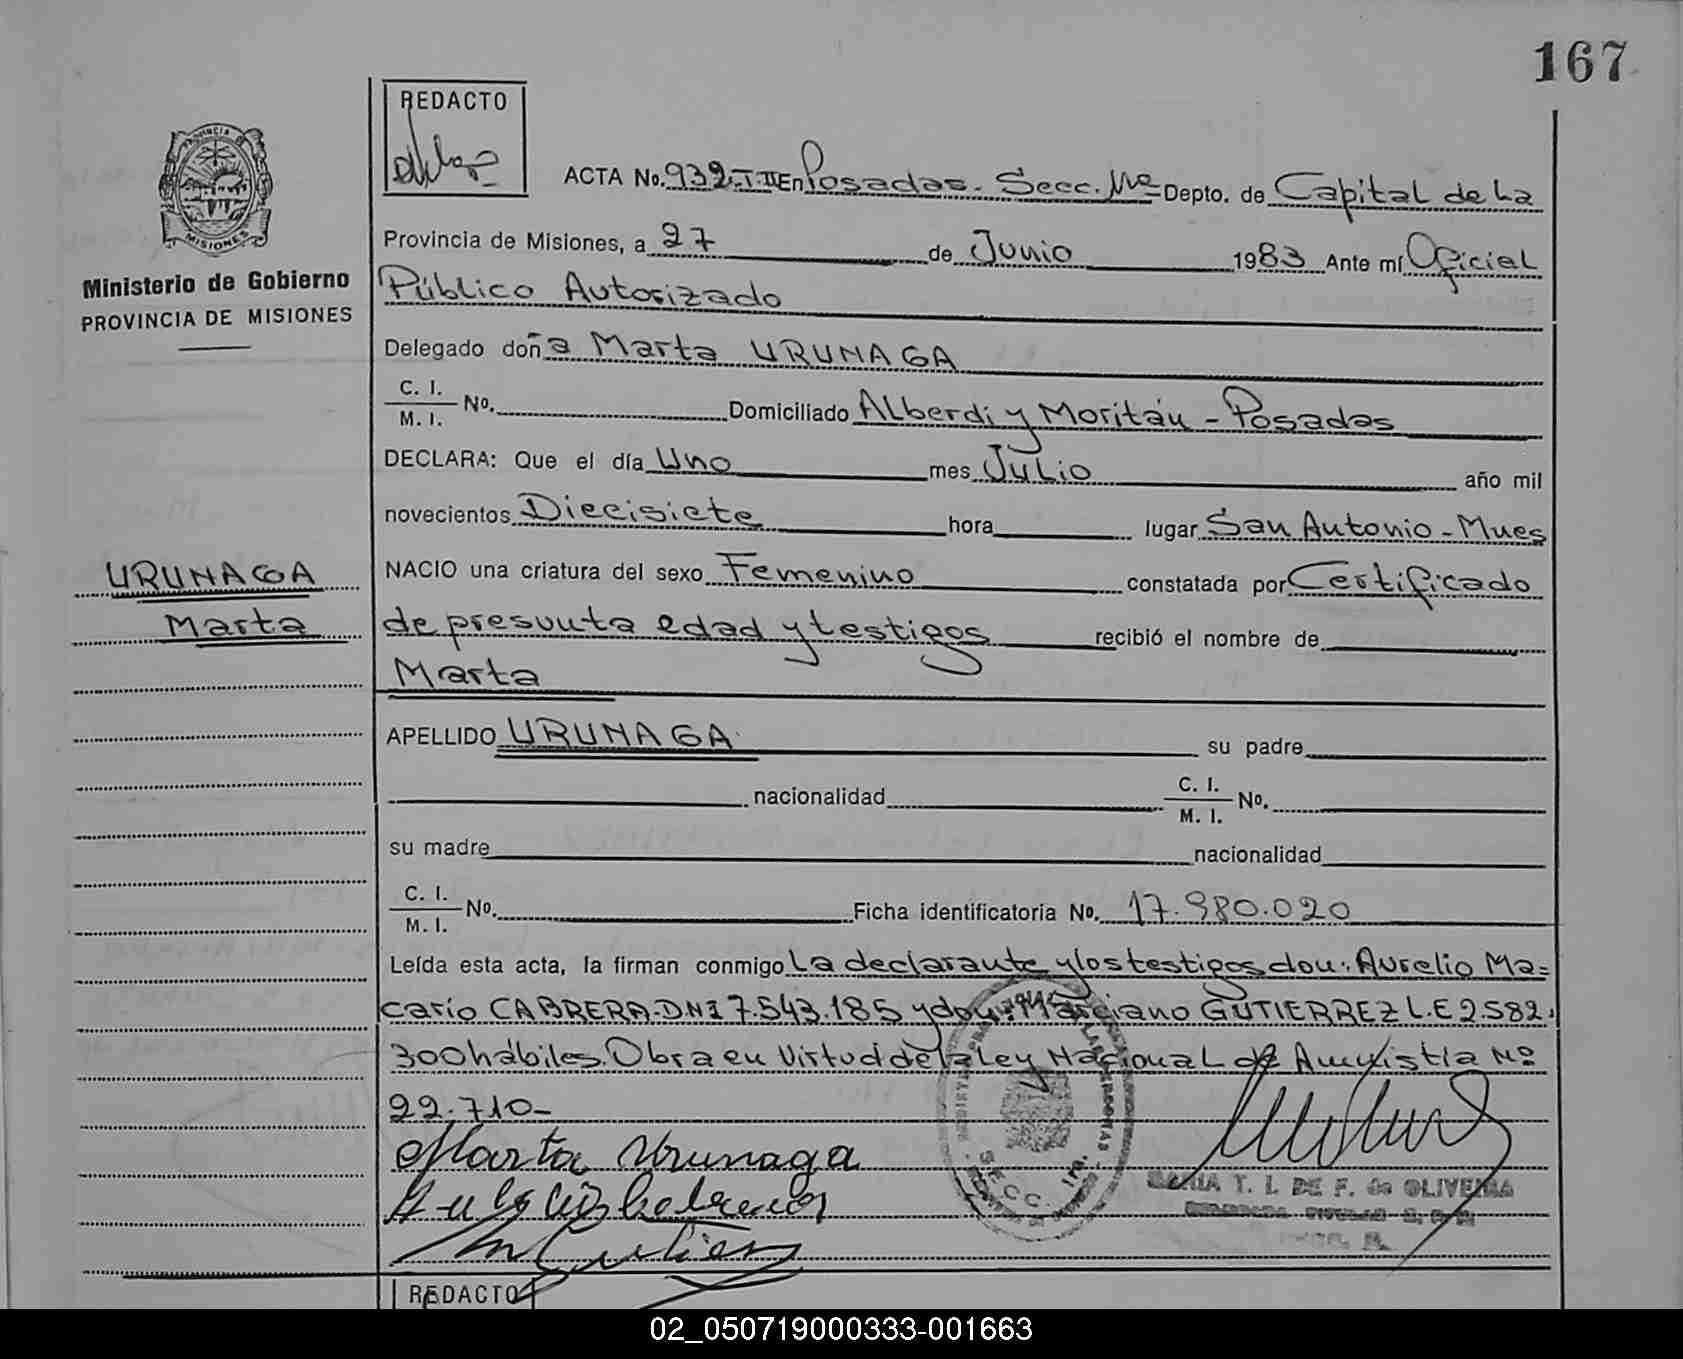 167
REDACTO
PROVINCIA DE
MISIONES
Ministerio de Gobierno
PROVINCIA DE MISIONES
ACTA No. 932-T-II En Posadas. Secc. 1ra Depto. de Capital de La
Provincia de Misiones, a 27 de Junio 1983 Ante mí Oficial
Público Autorizado
Delegado doña Marta URUNAGA
C. I.
M. I. No. Domiciliado Alberdi y Moritán - Posadas
DECLARA: Que el día Uno mes Julio año mil
novecientos Diecisiete hora lugar San Antonio - Mnes
URUNAGA
Marta
NACIO una criatura del sexo Femenino constatada por Certificado
de presunta edad y testigos recibió el nombre de
Marta
APELLIDO URUNAGA su padre
nacionalidad C. I.
M. I. No.
su madre nacionalidad
C. I.
M. I. No. Ficha identificatoria No. 17.980.020
Leída esta acta, la firman conmigo La declarante y los testigos don: Aurelio Ma=
cario CABRERA-DNI 7.543.185 y don: Marciano GUTIERREZ L.E 2.582.
300 hábiles. Obra en Virtud de la Ley Nacional de Amnistia Nº
22.710-
Marta Urunaga
SECC. 1ra.
MARIA T. I. DE F. de OLIVEIRA
REDACTO
02_050719000333-001663